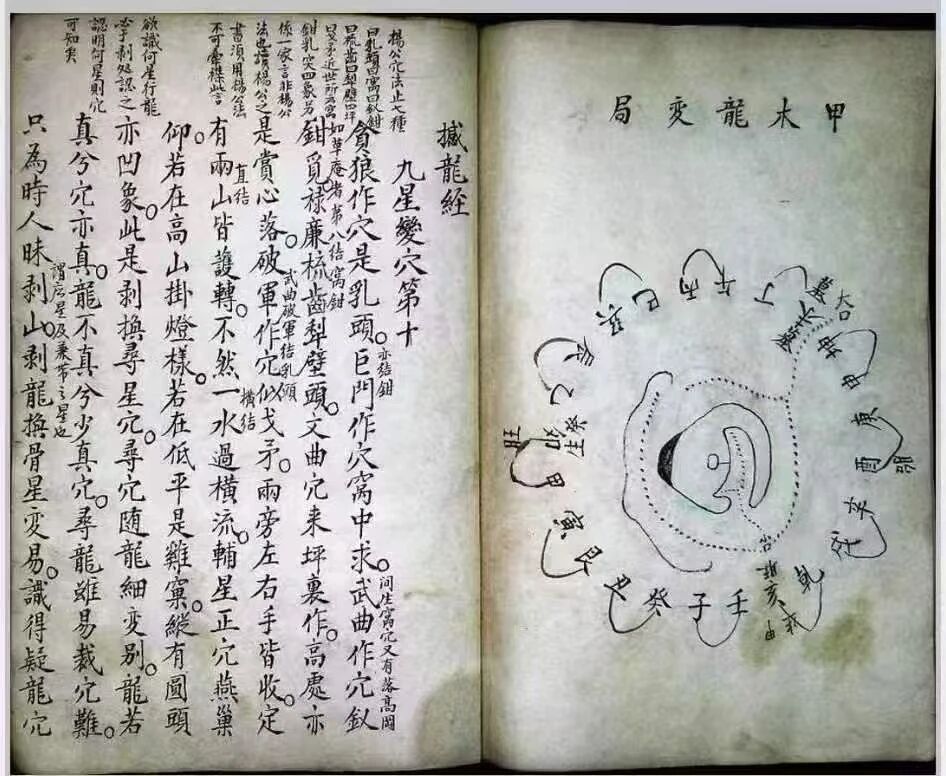 甲木龍变局
丁
丙
午
巳
巽
辰
乙
卯
旺
甲
寅
艮
丑
癸
子
壬
亥
乾
辛
酉
庚
申
坤
撼龍經
九星變穴第十
貪狼作穴是乳頭。亦结鉗巨門作穴窩中求。间生窩穴又有落高岡武曲作穴釵
鉗覓。如草庵者第八结窩鉗祿廉梳齒犁壁頭。文曲穴来坪裏作。高處亦
是賞心落。武曲破軍结乳頭破軍作穴似戈矛。兩旁左右手皆收。定
有兩山皆護轉。直结不然一水過橫流。横结輔星正穴燕巢
仰。若在高山掛燈樣。若在低平是雞窠。縱有圓頭
亦凹象。此是剥換尋星穴。尋穴随龍細變別。龍若
真兮穴亦真。龍不真兮少真穴。尋龍雖易裁穴難。
只為時人昧剥山。謂应星及兼帶之星也剥龍換骨星变易。識得疑龍穴
楊公穴法止七種
曰乳頭曰窩曰釵鉗
曰梳齒曰犁壁曰坪
曰戈矛近世所云窩
鉗乳突四象另
係一家言非楊公
法也讀楊公之
書須用楊公法
不可牽襍此言
欲識何星行龍
必于剥処認之
認明何星則穴
可知矣